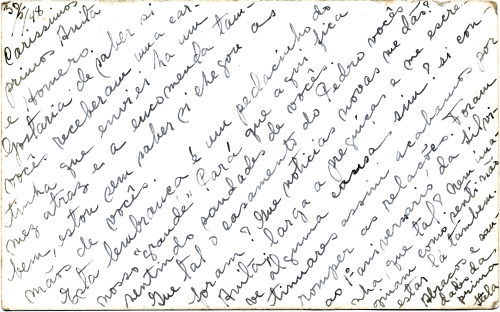 30/5/48
Caríssimos
primos Anita
e Homero.
Gostaria de saber si
vocês receberam uma car-
tinha que enviei ha um
mez atraz e a encomenda tam-
bem, estou sem saber si chegou as
mãos de vocês.
Esta lembrança é um pedacinho do
nosso "grande" Pará que aqui fica
sentindo saudades de vocês.
Que tal o casamento do Pedro vocês
foram? Que notícias novas me dão?
Anita, larga a preguiça e me escre-
ve alguma cousa sim? si con-
tinuares assim acabamos por
romper as relações. Foram
ao aniversário da Silvi-
nha, que tal? Nem ima-
ginam como senti não
estar lá tambem
Abraços e sau
dades da
prima